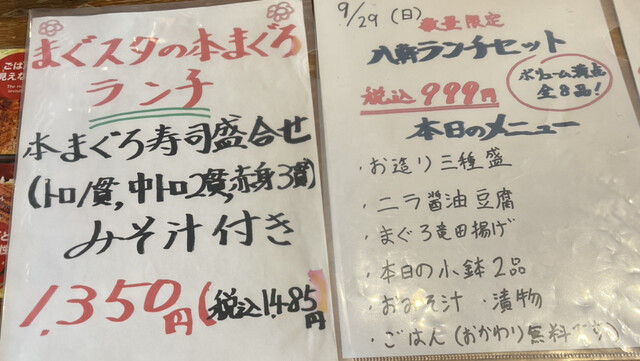 まぐスタの本まぐろ
ランチ
本まぐろ寿司盛合せ
(トロ1貫,中トロ2貫,赤身3貫)
みそ汁付き
1,350円(税込1,485円
9/29(日)
数量限定
ランチセット
税込999円
ボリューム満点
全8品!
本日のメニュー
・お造り三種盛
・ニラ醤油豆腐
・まぐろ竜田揚げ
・本日の小鉢2品
・おみそ汁・漬物
・ごはん(おかわり無料